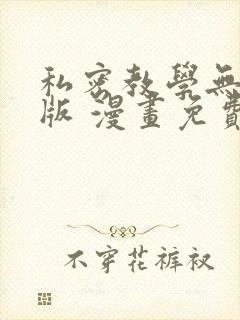 私密教學無
版 漫畫免費
不穿花裤衩